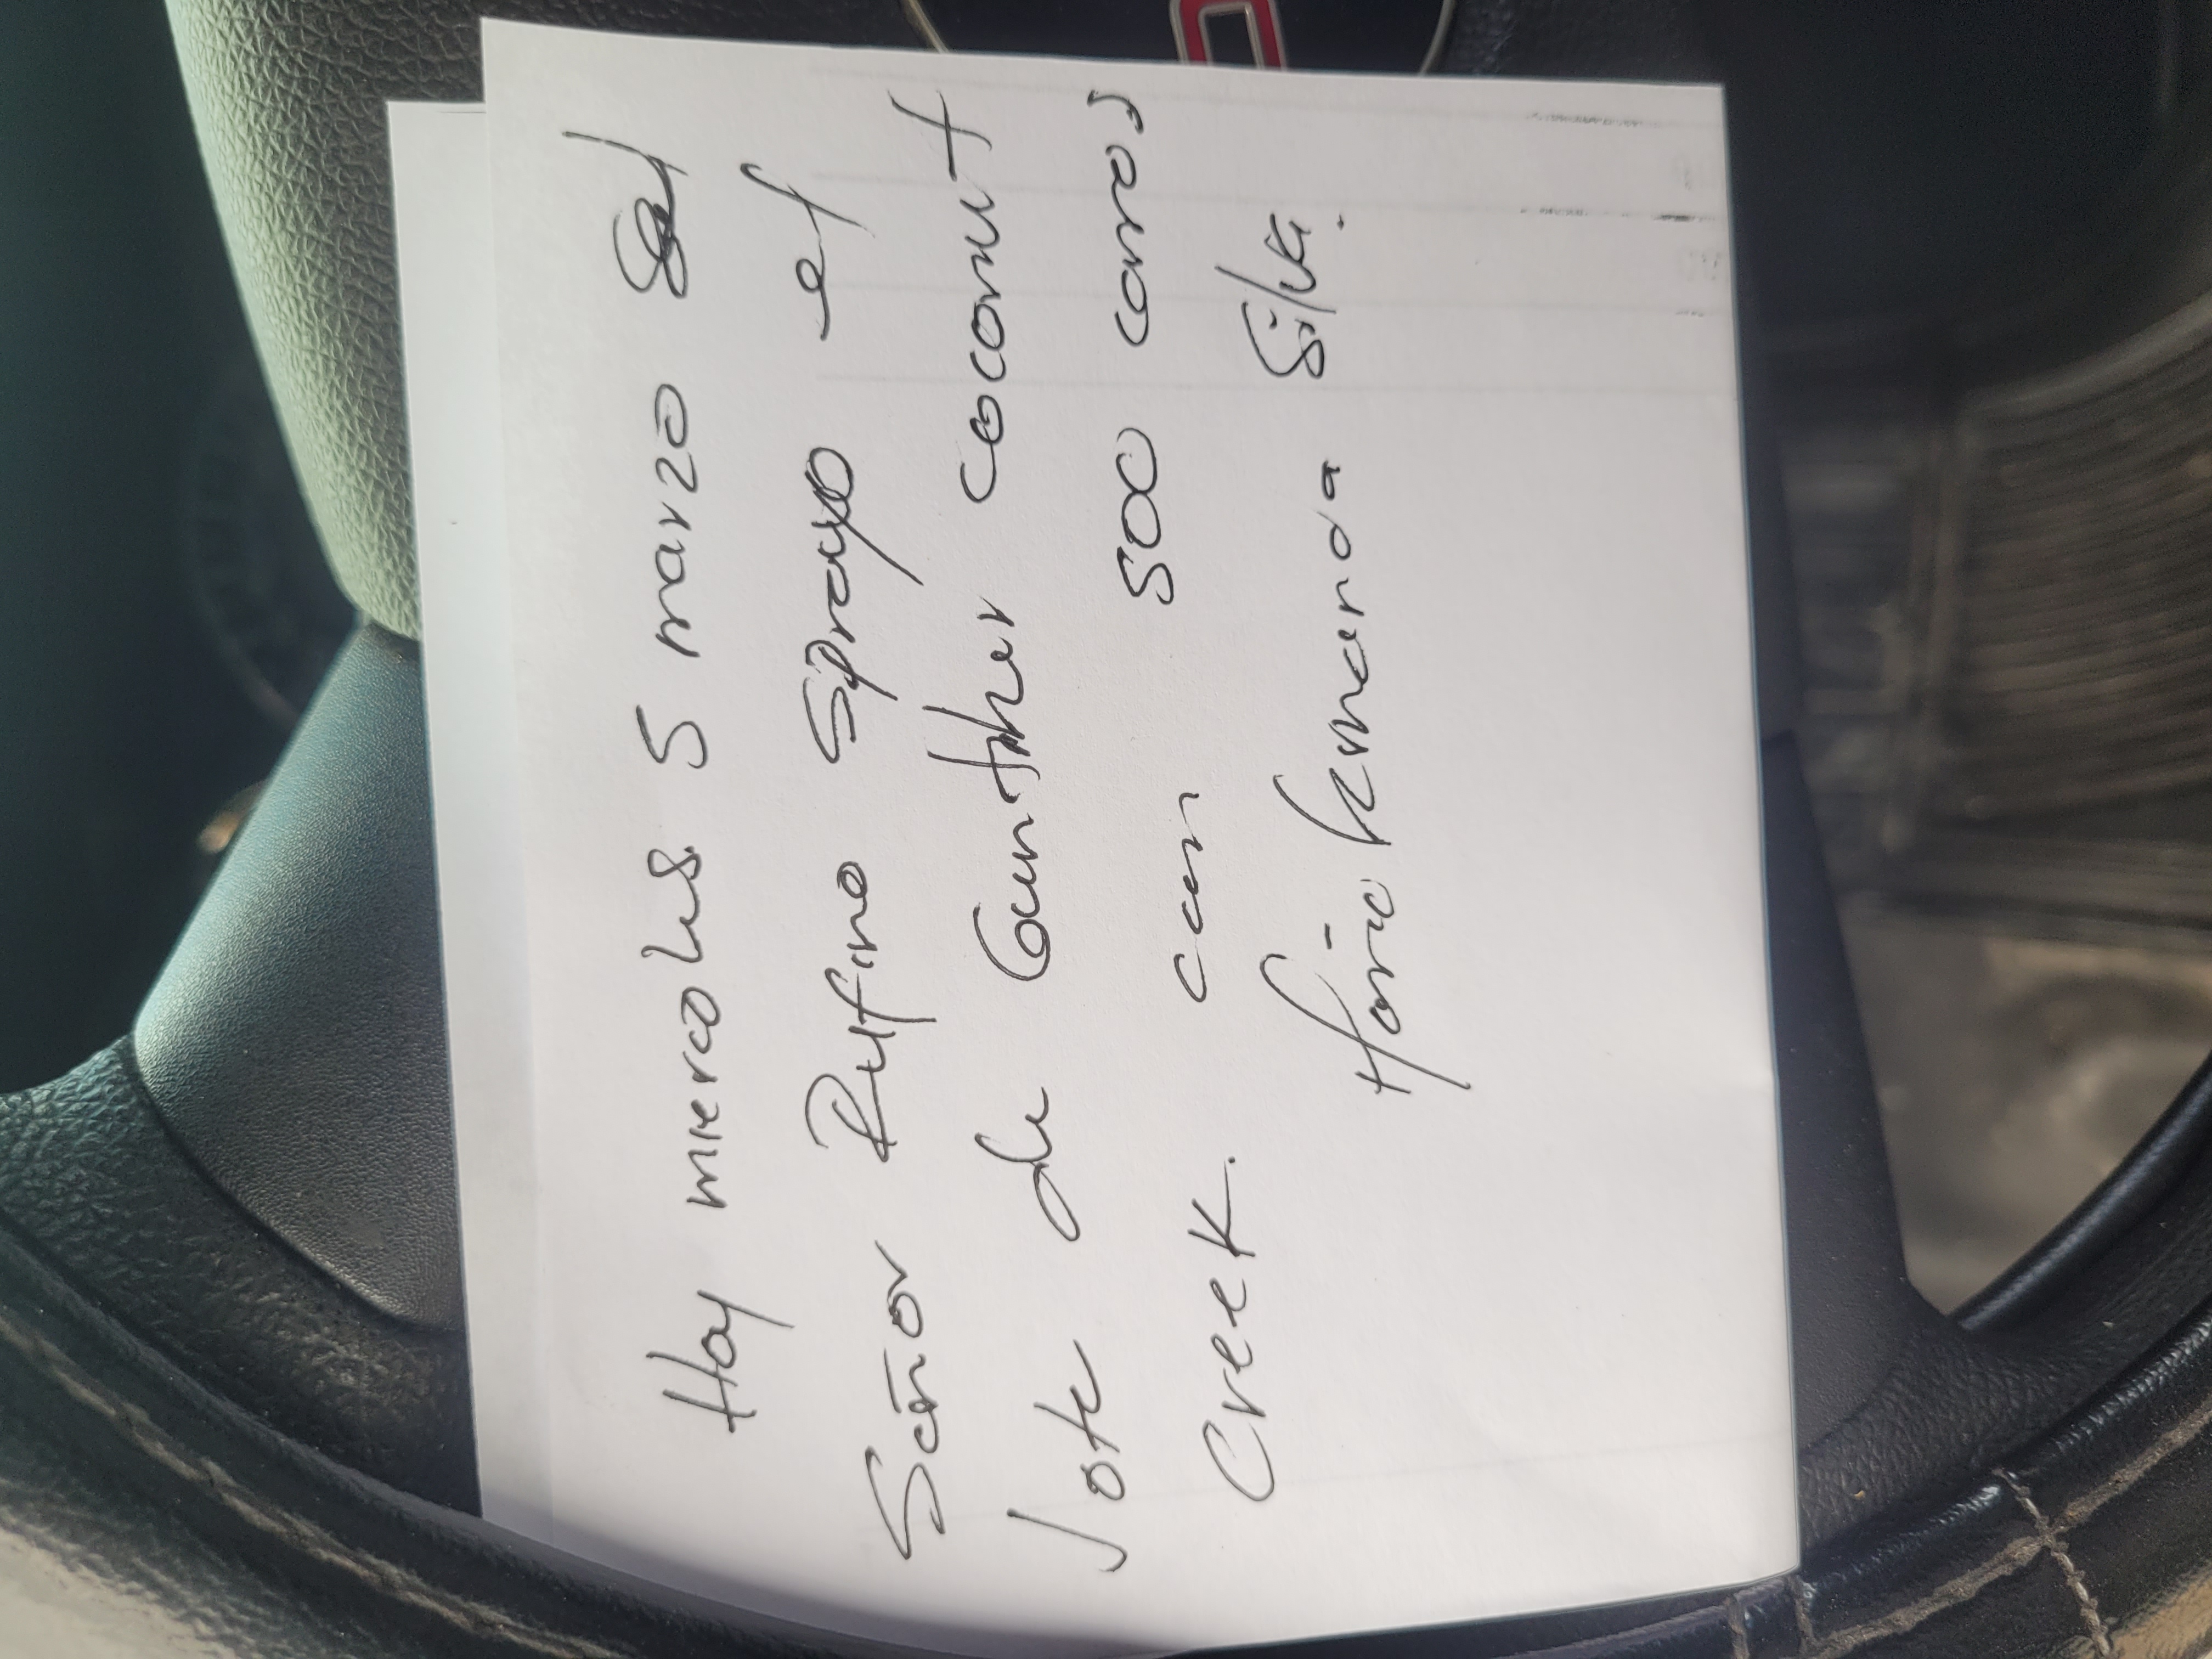 Hoy miercoles 5 marzo el
Señor Rufino Sprayo el
lote de Gunther coconut
Creek. con 500 canos
Silva.